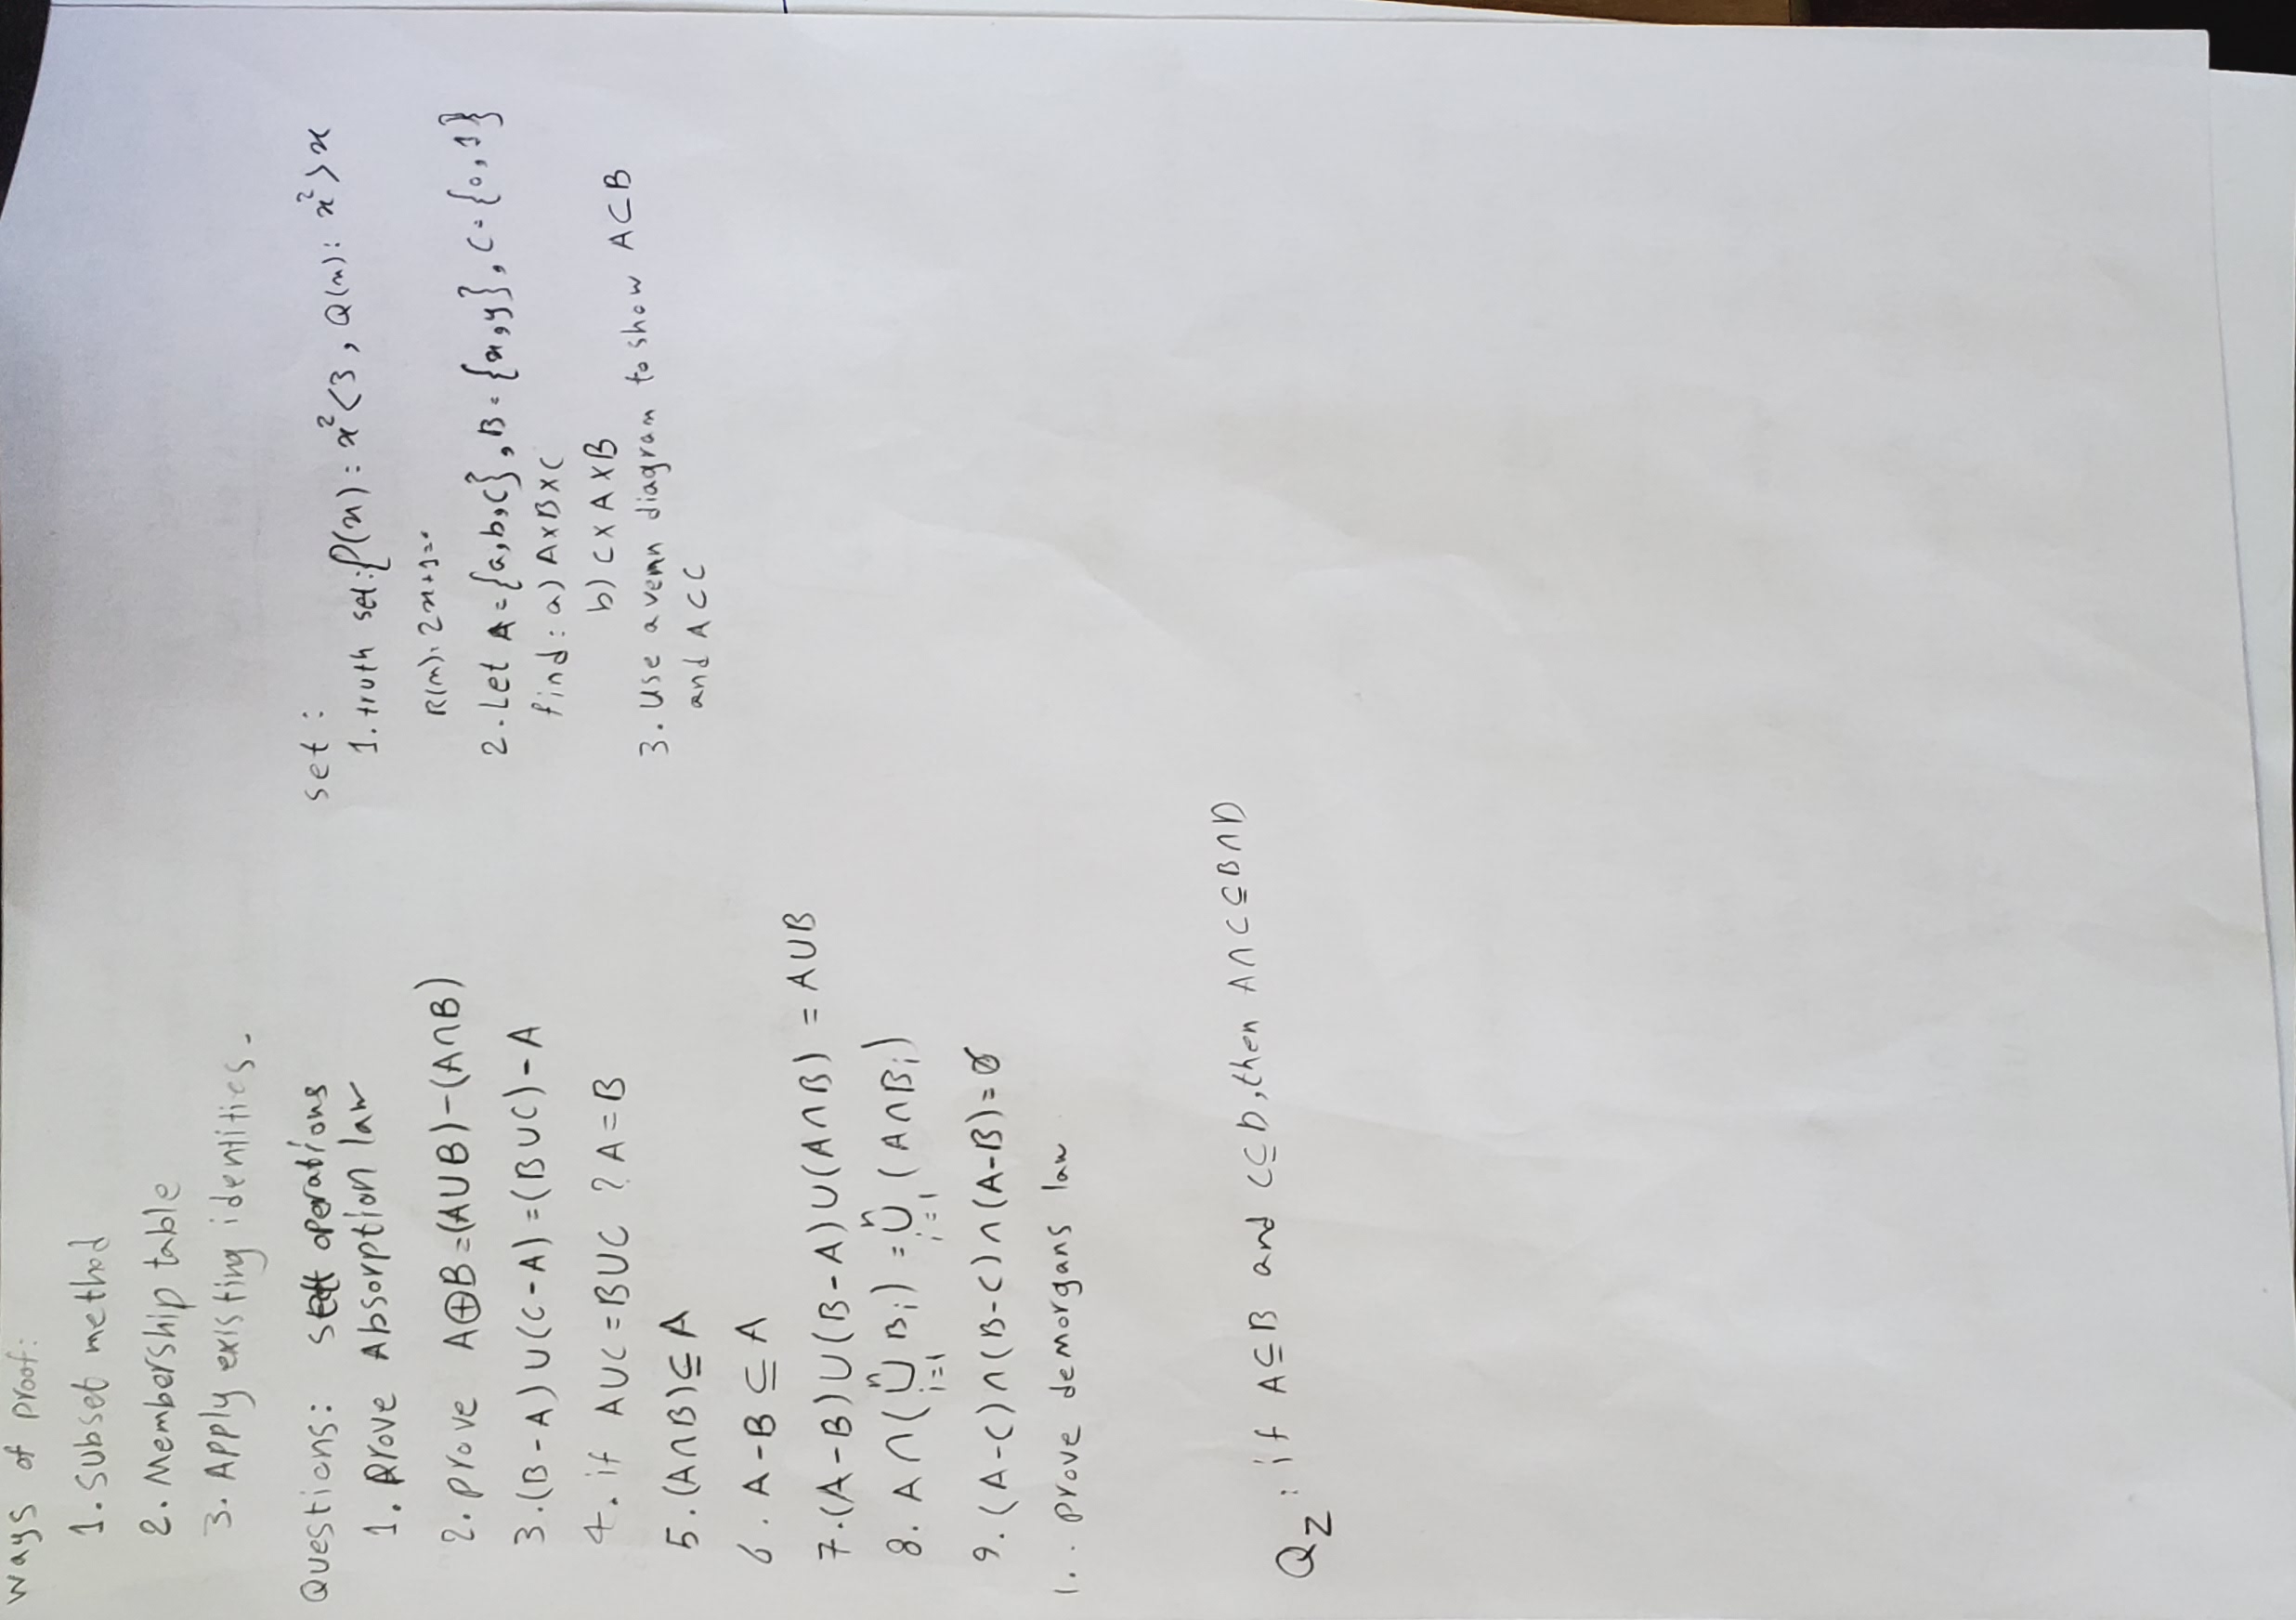 Ways of proof:
1. Subset method
2. Membership table
3. Apply existing identities.
Questions: set operations
1. Prove Absorption law
2. prove A⊕B=(A∪B)-(A∩B)
3.(B-A)∪(C-A)=(B∪C)-A
4. if A∪C=B∪C ? A=B
5.(A∩B)⊆A
6. A-B⊆A
7.(A-B)∪(B-A)∪(A∩B) = A∪B
8. A∩(⋃ⁿᵢ₌₁ Bᵢ) = ⋃ⁿᵢ₌₁ (A∩Bᵢ)
9. (A-C)∩(B-C)∩(A-B)=∅
1.. prove demorgans law
Qz: if A⊆B and C⊆D, then A∩C⊆B∩D
set:
1. truth set: P(x): x²<3, Q(x): x²>x
R(x): 2x+1=0
2. Let A={a,b,c}, B={x,y}, C={0,1}
find: a) A×B×C
b) C×A×B
3. Use a venn diagram to show A⊂B
and A⊂C